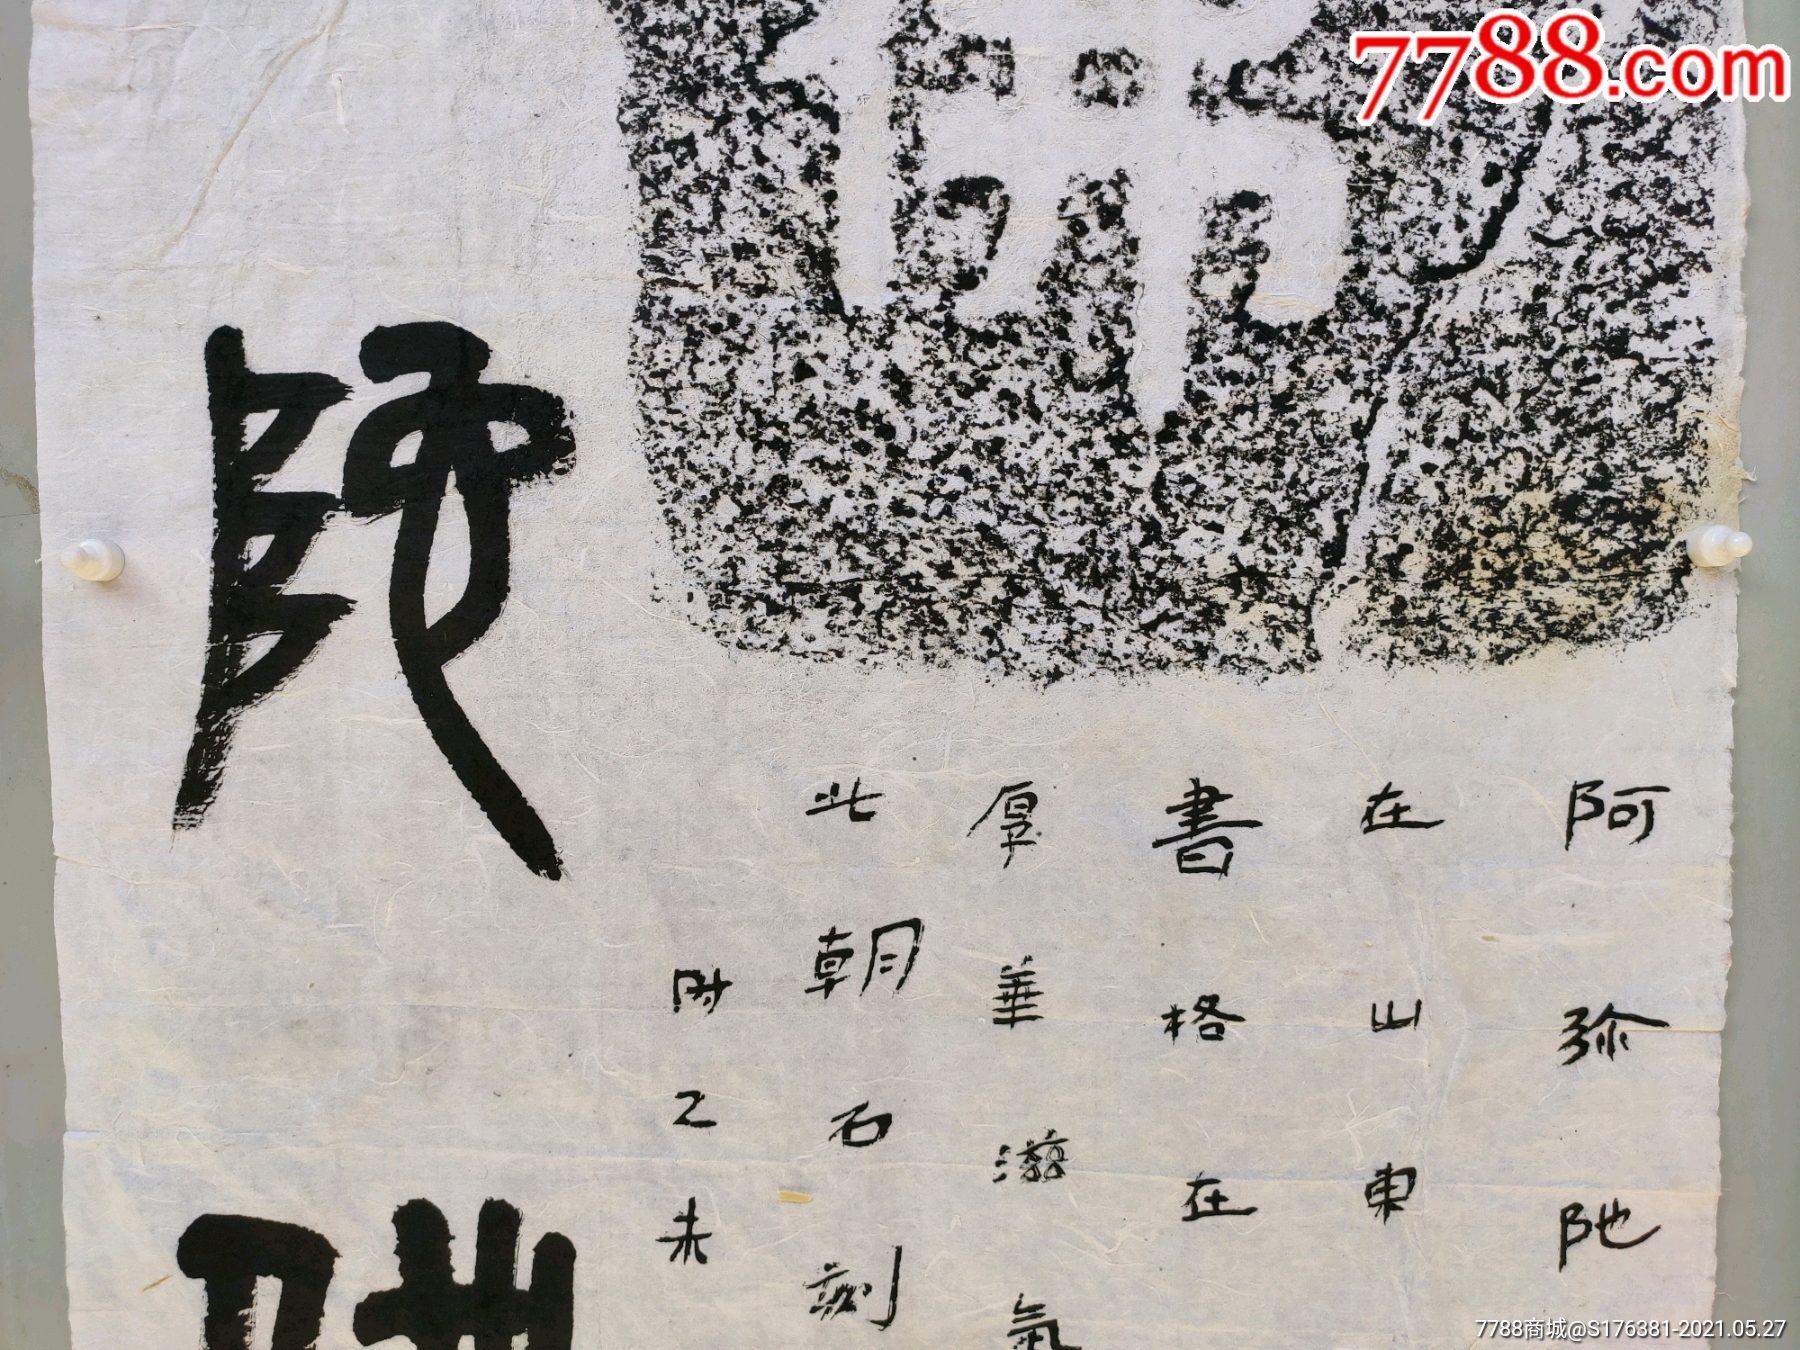 7788.com
阿弥阤
在山东
書格在
厚華滋氣
此朝石刻
时乙未
7788商城@S176381-2021.05.27